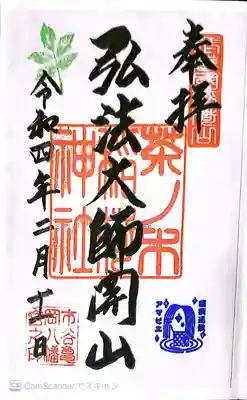 奉拝
弘法大師開山
茶ノ木
稲荷
神社
令和四年二月十二日
市谷亀
岡八幡
宮之印
疫病退散
アマビエ
CamScannerでスキャン